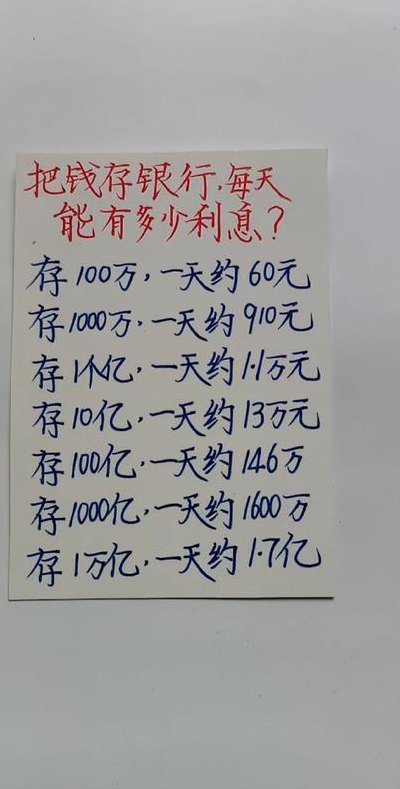 把钱存银行,每天
能有多少利息?
存100万,一天约60元
存1000万,一天约910元
存1个亿,一天约1.1万元
存10亿,一天约13万元
存100亿,一天约146万
存1000亿,一天约1600万
存1万亿,一天约1.7亿